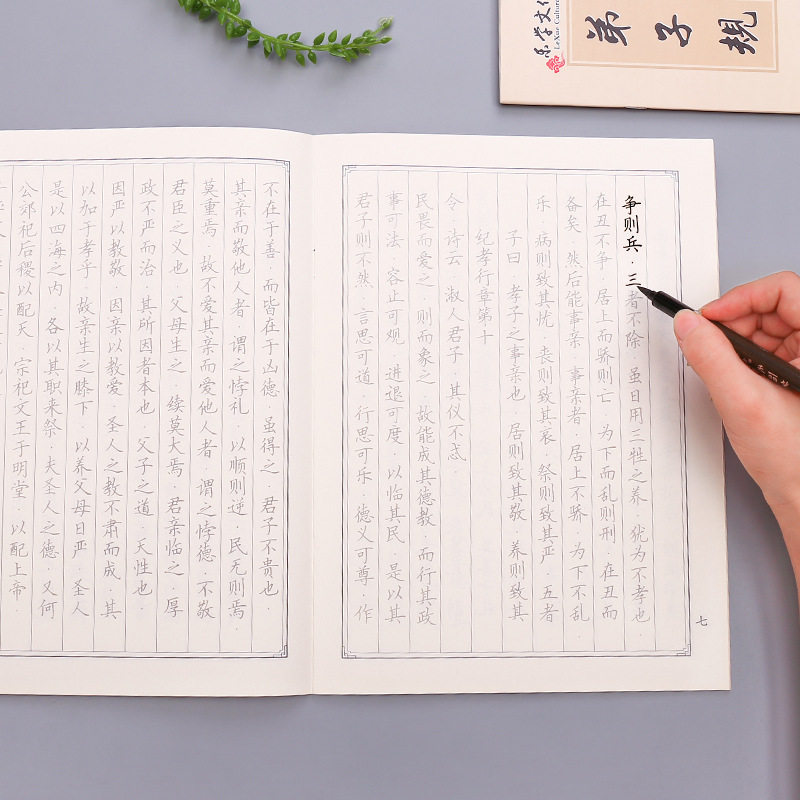 公郊祀后稷以配天·宗祀文王于明堂·以配上帝·
是以四海之内·各以其职来祭·夫圣人之德·又何
以加于孝乎·故亲生之膝下·以养父母日严·圣人
因严以教敬·因亲以教爱·圣人之教不肃而成·其
政不严而治·其所因者本也·父子之道·天性也·
君臣之义也·父母生之·续莫大焉·君亲临之·厚
莫重焉·故不爱其亲而爱他人者·谓之悖德·不敬
其亲而敬他人者·谓之悖礼·以顺则逆·民无则焉·
不在于善·而皆在于凶德·虽得之·君子不贵也·
君子则不然·言思可道·行思可乐·德义可尊·作
事可法·容止可观·进退可度·以临其民·是以其
民畏而爱之·则而象之·故能成其德教·而行其政
令·诗云·淑人君子·其仪不忒
纪孝行章第十
子曰·孝子之事亲也·居则致其敬·养则致其
乐·病则致其忧·丧则致其哀·祭则致其严·五者
备矣·然后能事亲·事亲者·居上不骄·为下不乱
在丑不争·居上而骄则亡·为下而乱则刑·在丑而
争则兵·三者不除·虽日用三牲之养·犹为不孝也·
七
弟子规
乐学文化
LeXue Culture